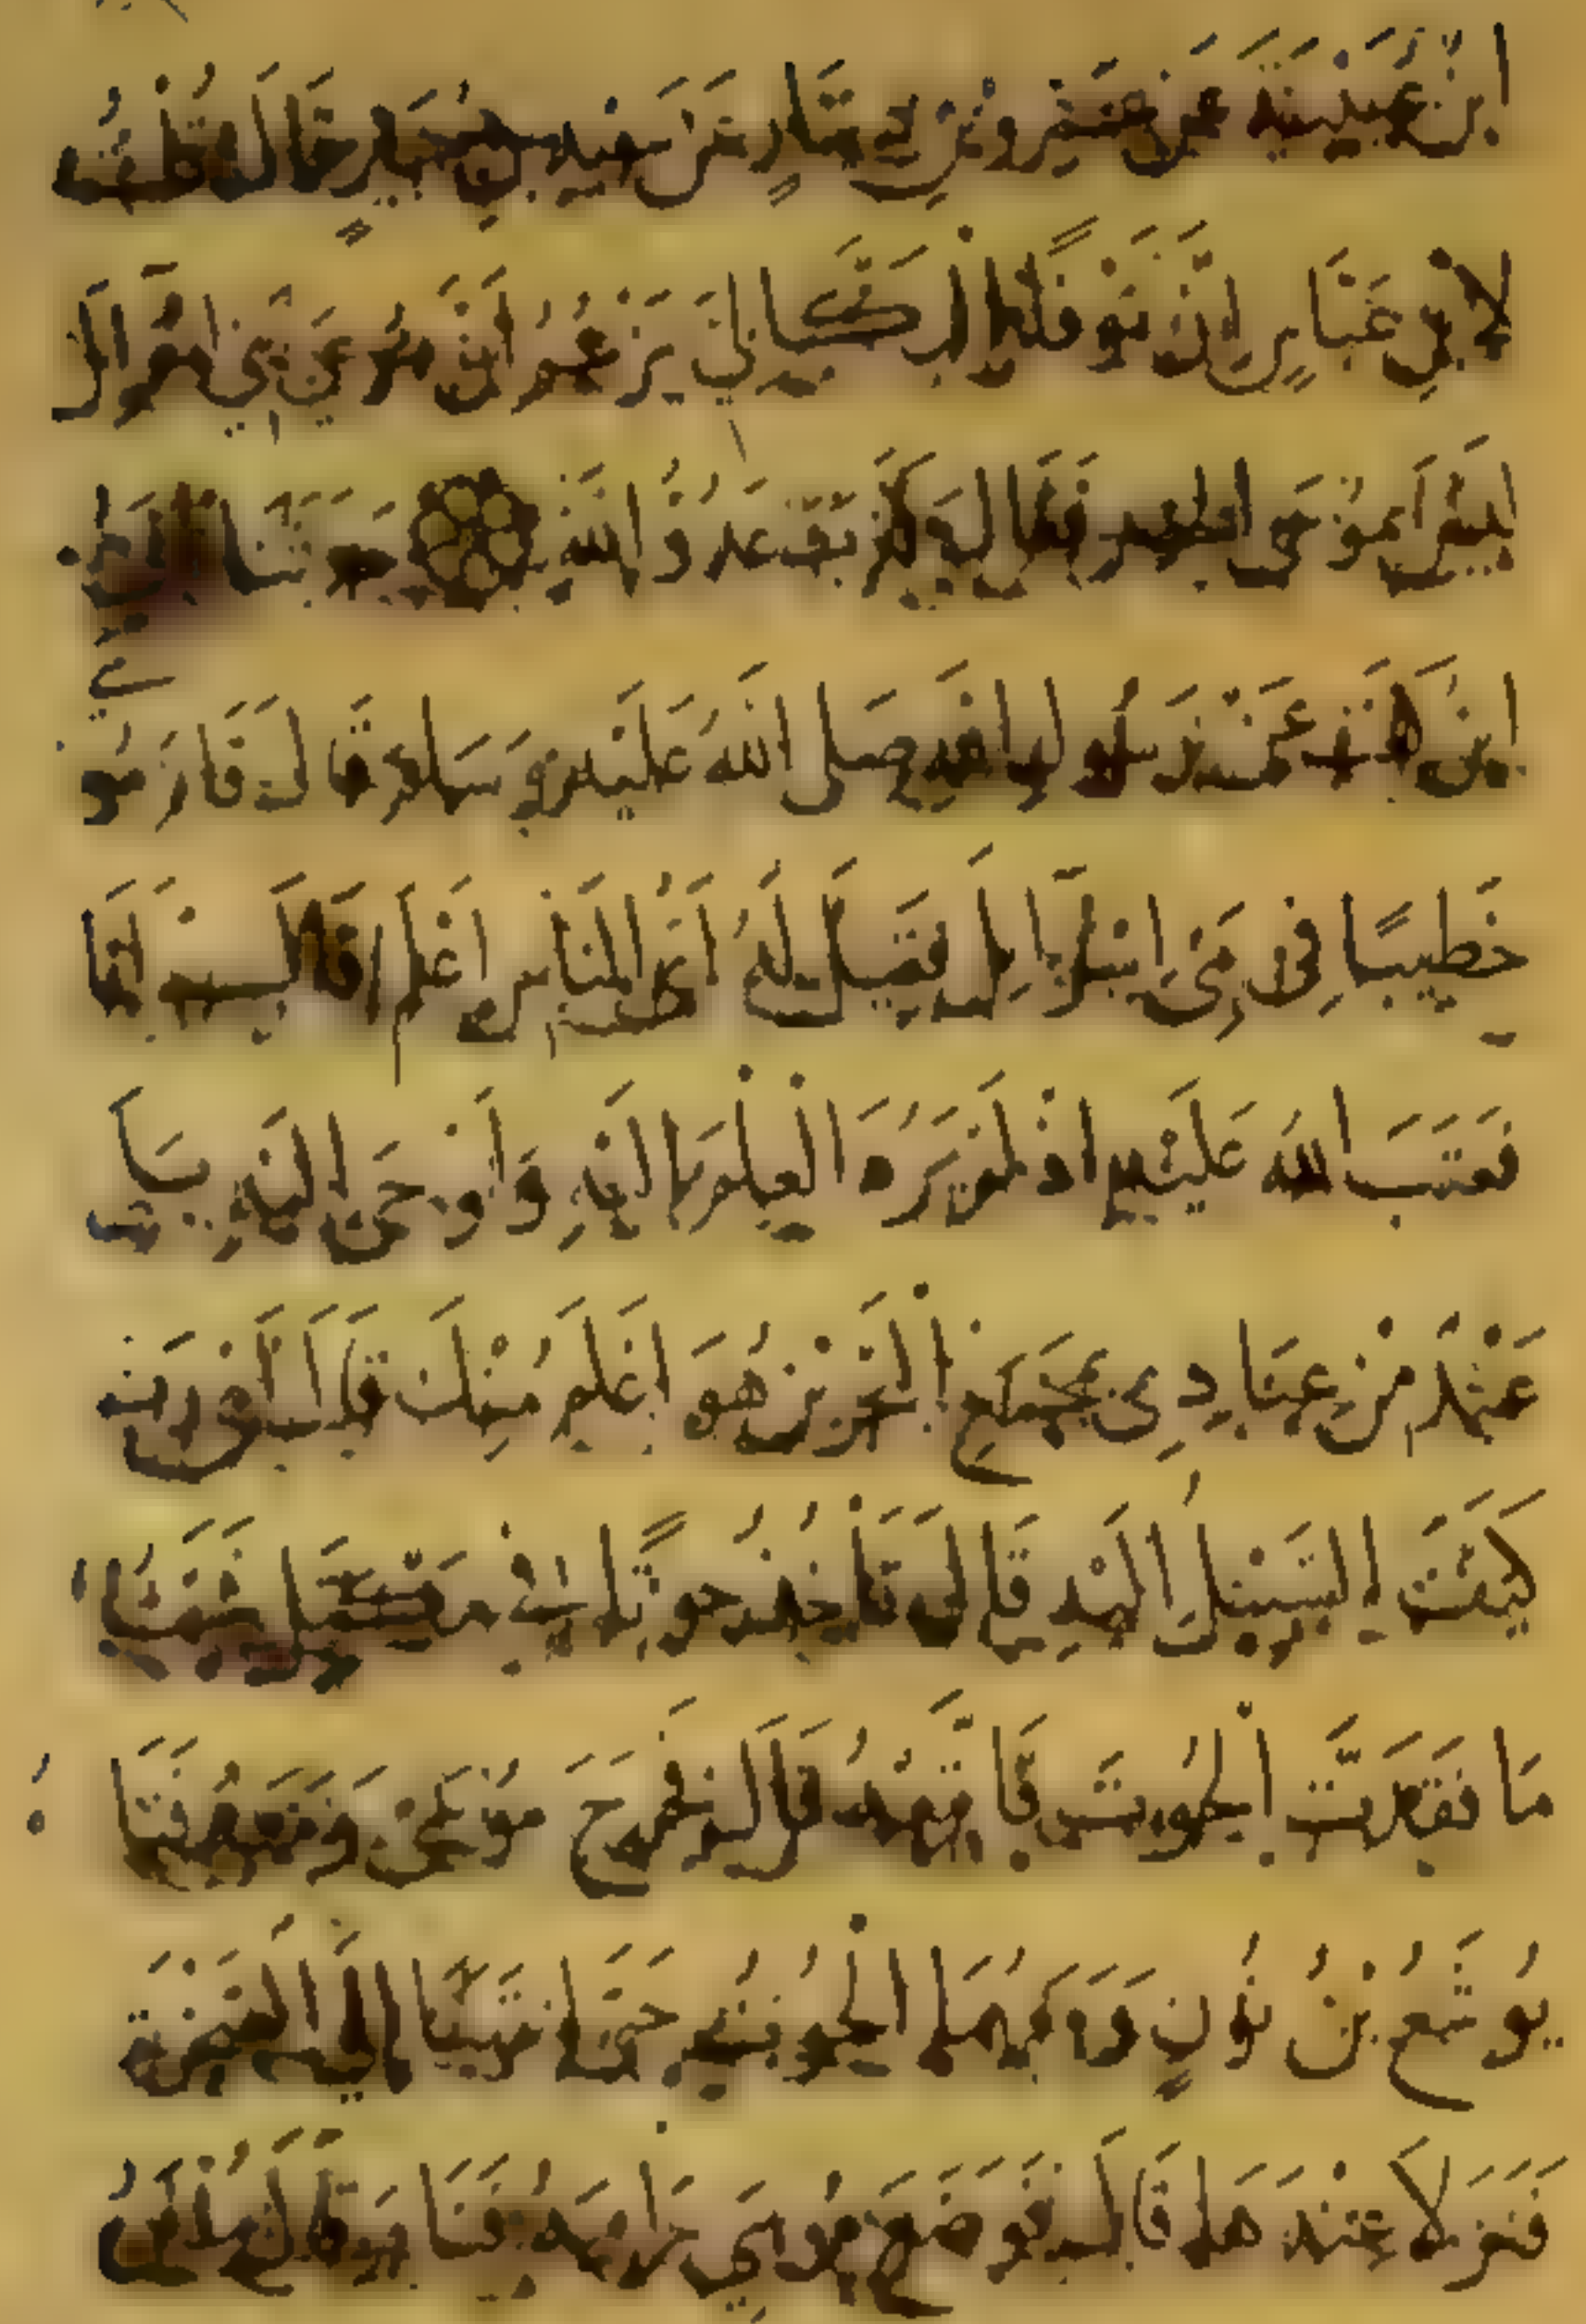 ابْنُ عُيَيْنَةَ عَنْ عَمْرِو بْنِ دِينَارٍ عَنْ سَعِيدِ بْنِ جُبَيْرٍ قَالَ قُلْتُ
لِابْنِ عَبَّاسٍ إِنَّ نَوْفًا الْبِكَالِيَّ يَزْعُمُ أَنَّ مُوسَى بَنِي إِسْرَائِيلَ
لَيْسَ مُوسَى الْخَضِرِ فَقَالَ كَذَبَ عَدُوُّ اللهِ حَدَّثَنَا أُبَيُّ
ابْنُ كَعْبٍ عَنْ رَسُولِ اللهِ صَلَّى اللهُ عَلَيْهِ وَسَلَّمَ قَالَ قَامَ مُوسَى
خَطِيبًا فِي بَنِي إِسْرَائِيلَ فَقِيلَ لَهُ أَيُّ النَّاسِ أَعْلَمُ قَالَ أَنَا
فَعَتَبَ اللهُ عَلَيْهِ إِذْ لَمْ يَرُدَّ الْعِلْمَ إِلَيْهِ وَأَوْحَى إِلَيْهِ بَلَى
عَبْدٌ مِنْ عِبَادِي بِمَجْمَعِ الْبَحْرَيْنِ هُوَ أَعْلَمُ مِنْكَ قَالَ أَيْ رَبِّ
كَيْفَ السَّبِيلُ إِلَيْهِ قَالَ تَأْخُذُ حُوتًا فِي مِكْتَلٍ فَحَيْثُ
مَا فَقَدْتَ الْحُوتَ فَاتَّبِعْهُ قَالَ فَخَرَجَ مُوسَى وَمَعَهُ فَتَاهُ
يُوشَعُ بْنُ نُونٍ وَمَعَهُمَا الْحُوتُ حَتَّى انْتَهَيَا إِلَى الصَّخْرَةِ
فَنَزَلَا عِنْدَهَا قَالَ فَوَضَعَ مُوسَى رَأْسَهُ فَنَامَ قَالَ سُفْيَانُ